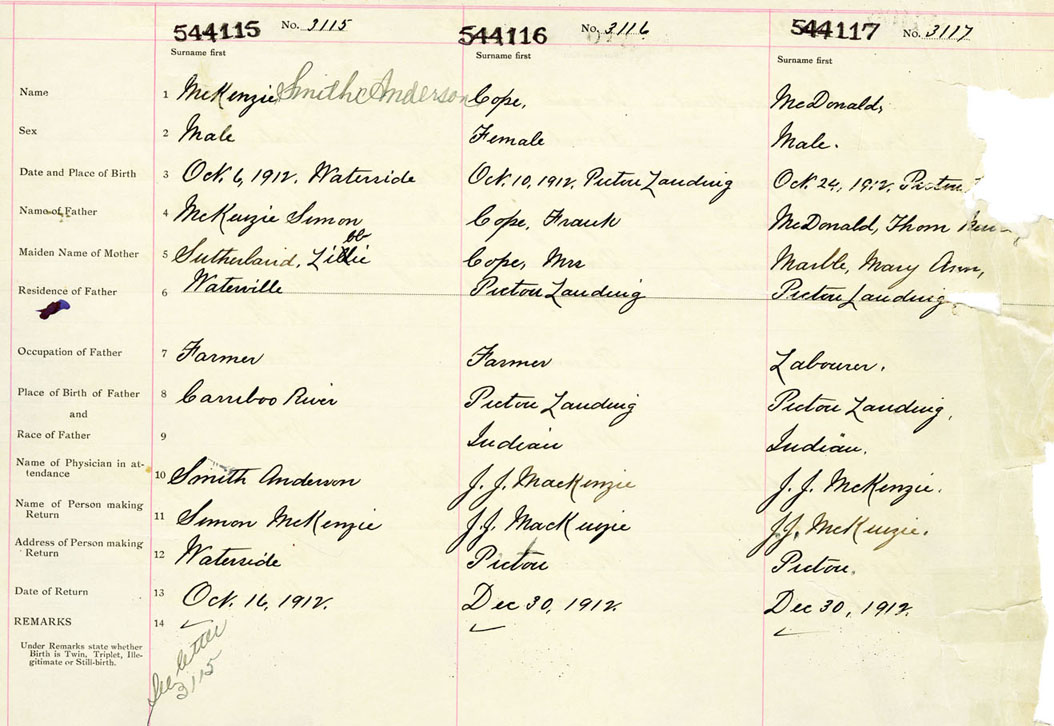 544115 No. 3115 544116 No. 3116 544117 No. 3117
Surname first Surname first Surname first
Name 1 McKenzie, Smith Anderson Cope, McDonald,
Sex 2 Male Female Male.
Date and Place of Birth 3 Oct. 6, 1912. Waterside Oct. 10, 1912. Pictou Landing Oct. 24, 1912, Pictou
Name of Father 4 McKenzie Simon Cope, Frank McDonald, Thom
bb
Maiden Name of Mother 5 Sutherland, Lillie Cope, Mrs Marble, Mary Ann,
Residence of Father 6 Waterville Pictou Landing Pictou Landing
Occupation of Father 7 Farmer Farmer Labourer.
Place of Birth of Father 8 Carriboo River Pictou Landing Pictou Landing,
and
Race of Father 9 Indian Indian.
Name of Physician in at-
tendance 10 Smith Anderson J. J. MacKenzie J. J. McKenzie.
Name of Person making
Return 11 Simon McKenzie J. J. MacKenzie J. J. McKenzie.
Address of Person making
Return 12 Waterside Pictou Pictou.
Date of Return 13 Oct. 16, 1912. Dec 30, 1912. Dec 30, 1912.
REMARKS 14
Under Remarks state whether
Birth is Twin, Triplet, Ille-
gitimate or Still-birth.
See letter
3115